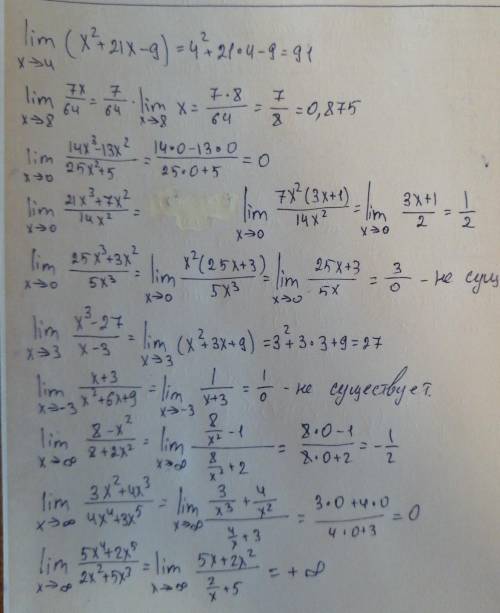 lim x→4 (x² + 21x - 9) = 4² + 21·4 - 9 = 91
lim x→8 7x/64 = 7/64 · lim x→8 x = 7·8/64 = 7/8 = 0,875
lim x→0 (14x³ - 13x²)/(25x² + 5) = (14·0 - 13·0)/(25·0 + 5) = 0
lim x→0 (21x³ + 7x²)/(14x²) = lim x→0 7x²(3x + 1)/(14x²) = lim x→0 (3x + 1)/2 = 1/2
lim x→0 (25x³ + 3x²)/(5x³) = lim x→0 x²(25x + 3)/(5x³) = lim x→0 (25x + 3)/(5x) = 3/0 - не сущ
lim x→3 (x³ - 27)/(x - 3) = lim x→3 (x² + 3x + 9) = 3² + 3·3 + 9 = 27
lim x→-3 (x + 3)/(x² + 6x + 9) = lim x→-3 1/(x + 3) = 1/0 - не существует.
lim x→∞ (8 - x²)/(8 + 2x²) = lim x→∞ (8/x² - 1)/(8/x² + 2) = (8·0 - 1)/(8·0 + 2) = -1/2
lim x→∞ (3x² + 4x³)/(4x⁴ + 3x⁵) = lim x→∞ (3/x³ + 4/x²)/(4/x + 3) = (3·0 + 4·0)/(4·0 + 3) = 0
lim x→∞ (5x⁴ + 2x⁵)/(2x² + 5x³) = lim x→∞ (5x + 2x²)/(2/x + 5) = +∞